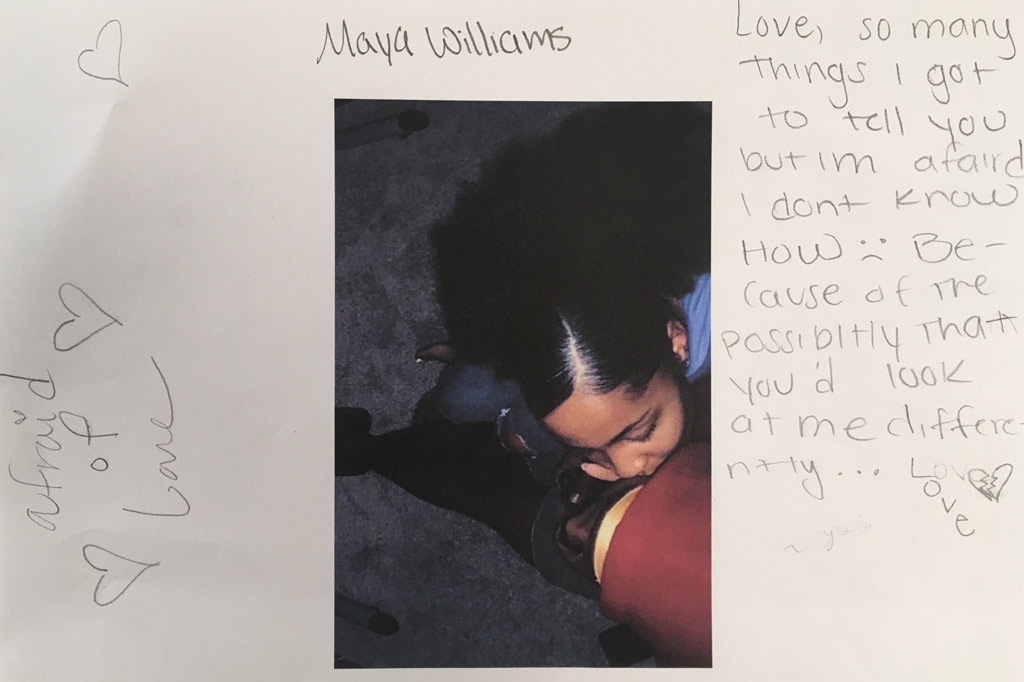 Maya Williams
Love, so many
things I got
to tell you
but im afaird
I dont know
How :( Be-
cause of the
possibltly that
you'd look
at me differe-
ntly... Love
Love
afraid
of
Love